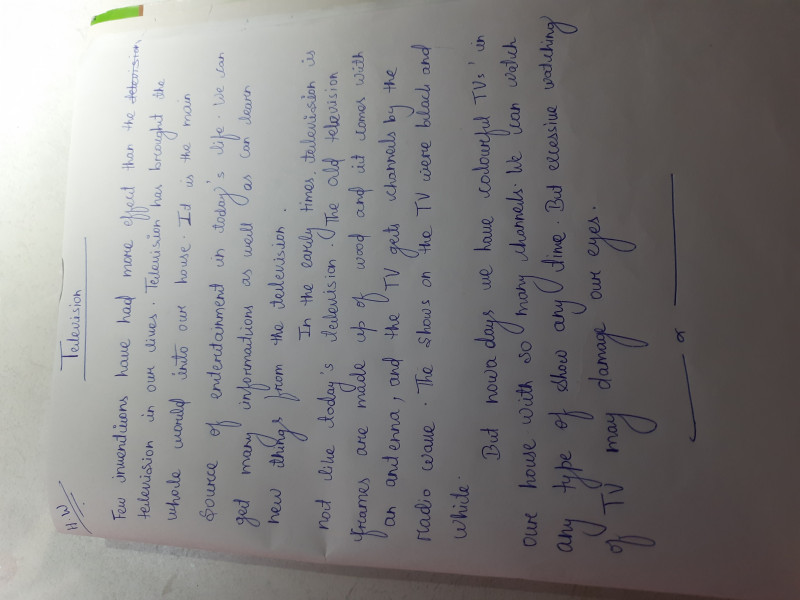 H.W
Television
Few inventions have had more effect than the television
television in our lives. Television has brought the
whole world into our house. It is the main
source of entertainment in today's life. We can
get many informations as well as can learn
new things from the television.
In the early times, television is
not like today's television. The old television
frames are made up of wood and it comes with
an antenna, and the TV gets channels by the
radio wave. The shows on the TV were black and
white.
But nowadays we have colourful TVs' in
our house with so many channels. We can watch
any type of show any time. But excessive watching
of TV may damage our eyes.